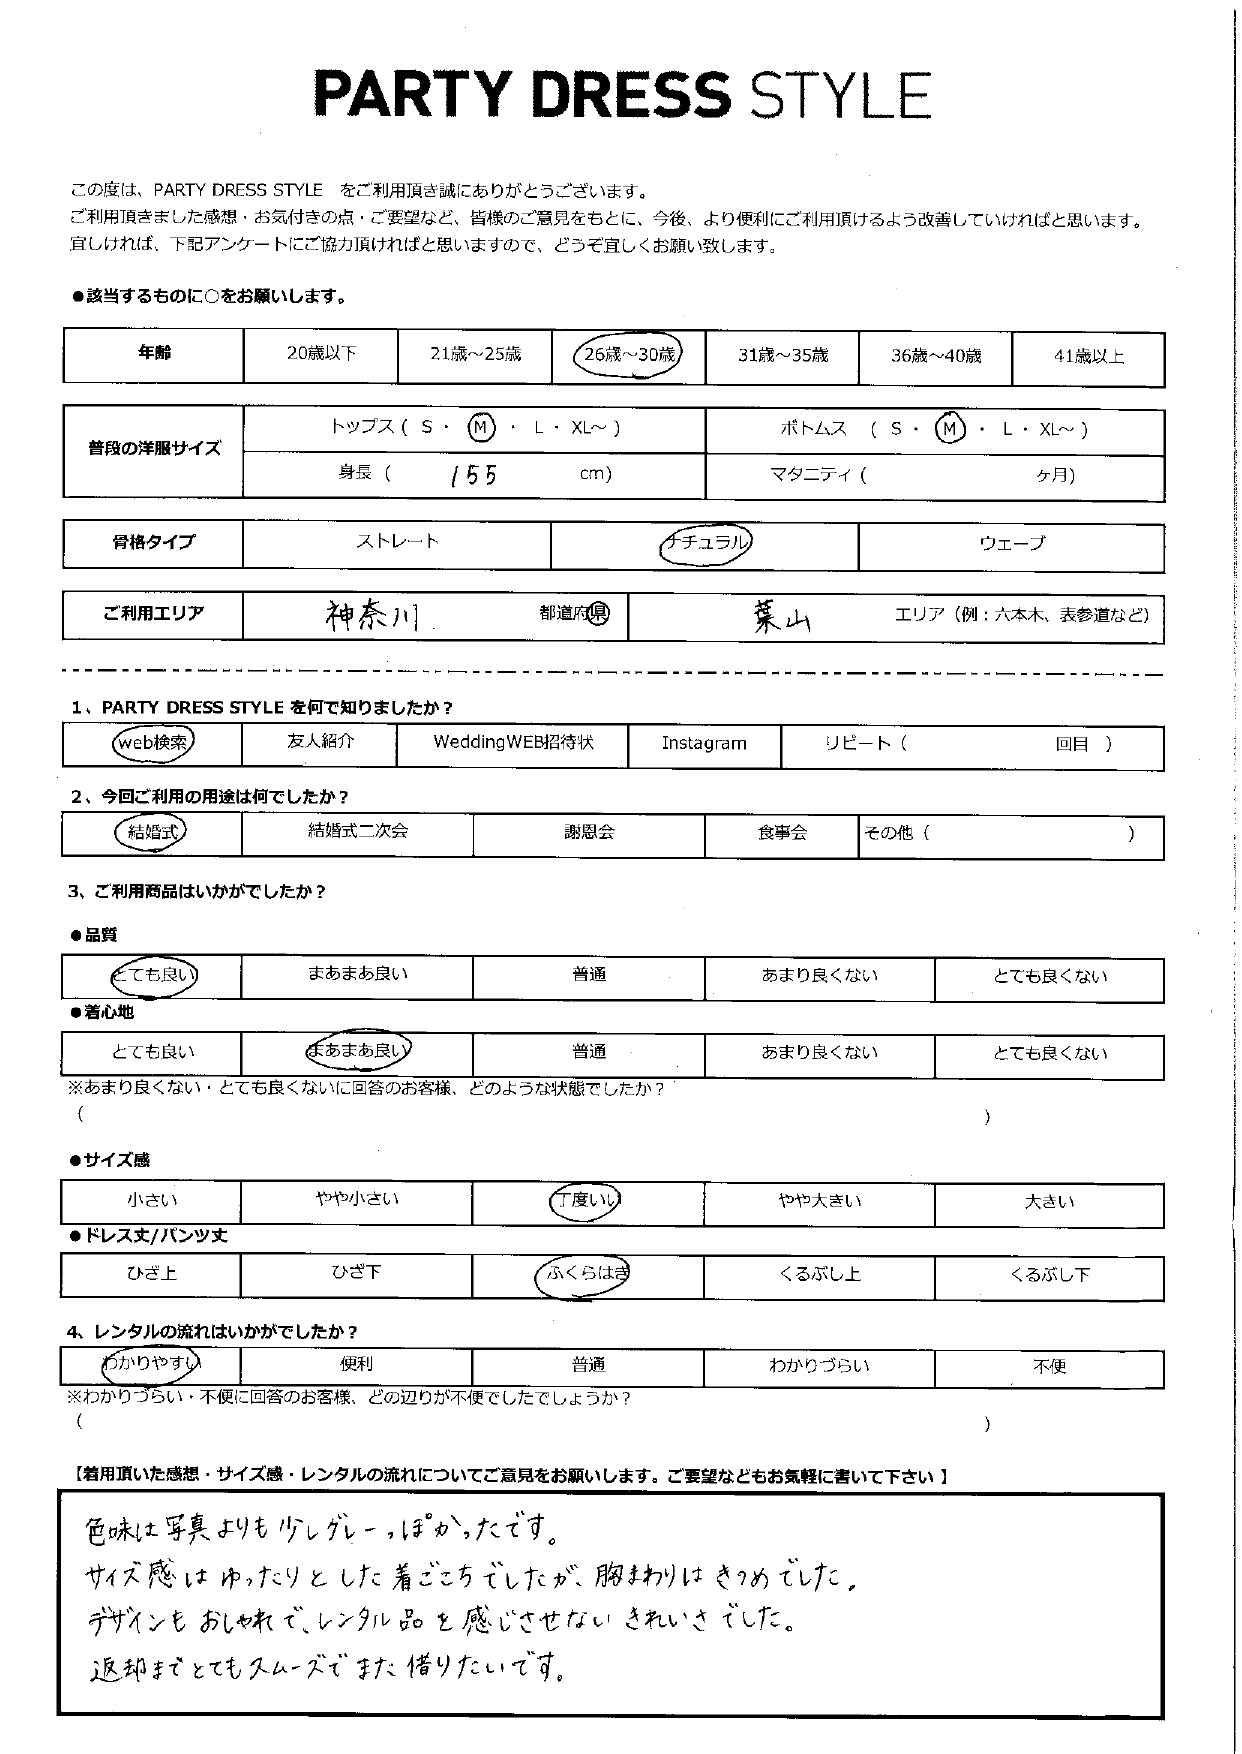 PARTY DRESS STYLE
この度は、PARTY DRESS STYLE をご利用頂き誠にありがとうございます。
ご利用頂きました感想・お気付きの点・ご要望など、皆様のご意見をもとに、今後、より便利にご利用頂けるよう改善していければと思います。
宜しければ、下記アンケートにご協力頂ければと思いますので、どうぞ宜しくお願い致します。
●該当するものに○をお願いします。
年齢 20歳以下 21歳～25歳 26歳～30歳 31歳～35歳 36歳～40歳 41歳以上
普段の洋服サイズ トップス ( S ・ M ・ L ・ XL～ ) ボトムス ( S ・ M ・ L ・ XL～ )
身長 ( 155 cm) マタニティ ( ヶ月)
骨格タイプ ストレート ナチュラル ウェーブ
ご利用エリア 神奈川 都道府県 葉山 エリア（例：六本木、表参道など）
1、PARTY DRESS STYLE を何で知りましたか？
web検索 友人紹介 WeddingWEB招待状 Instagram リピート（ 回目 ）
2、今回ご利用の用途は何でしたか？
結婚式 結婚式二次会 謝恩会 食事会 その他（ ）
3、ご利用商品はいかがでしたか？
●品質
とても良い まあまあ良い 普通 あまり良くない とても良くない
●着心地
とても良い まあまあ良い 普通 あまり良くない とても良くない
※あまり良くない・とても良くないに回答のお客様、どのような状態でしたか？
（ ）
●サイズ感
小さい やや小さい 丁度いい やや大きい 大きい
●ドレス丈/パンツ丈
ひざ上 ひざ下 ふくらはぎ くるぶし上 くるぶし下
4、レンタルの流れはいかがでしたか？
わかりやすい 便利 普通 わかりづらい 不便
※わかりづらい・不便に回答のお客様、どの辺りが不便でしたでしょうか？
（ ）
【着用頂いた感想・サイズ感・レンタルの流れについてご意見をお願いします。ご要望などもお気軽に書いて下さい 】
色味は写真よりも少しグレーっぽかったです。
サイズ感はゆったりとした着ごこちでしたが、胸まわりはきつめでした。
デザインもおしゃれで、レンタル品を感じさせないきれいさでした。
返却までとてもスムーズでまた借りたいです。